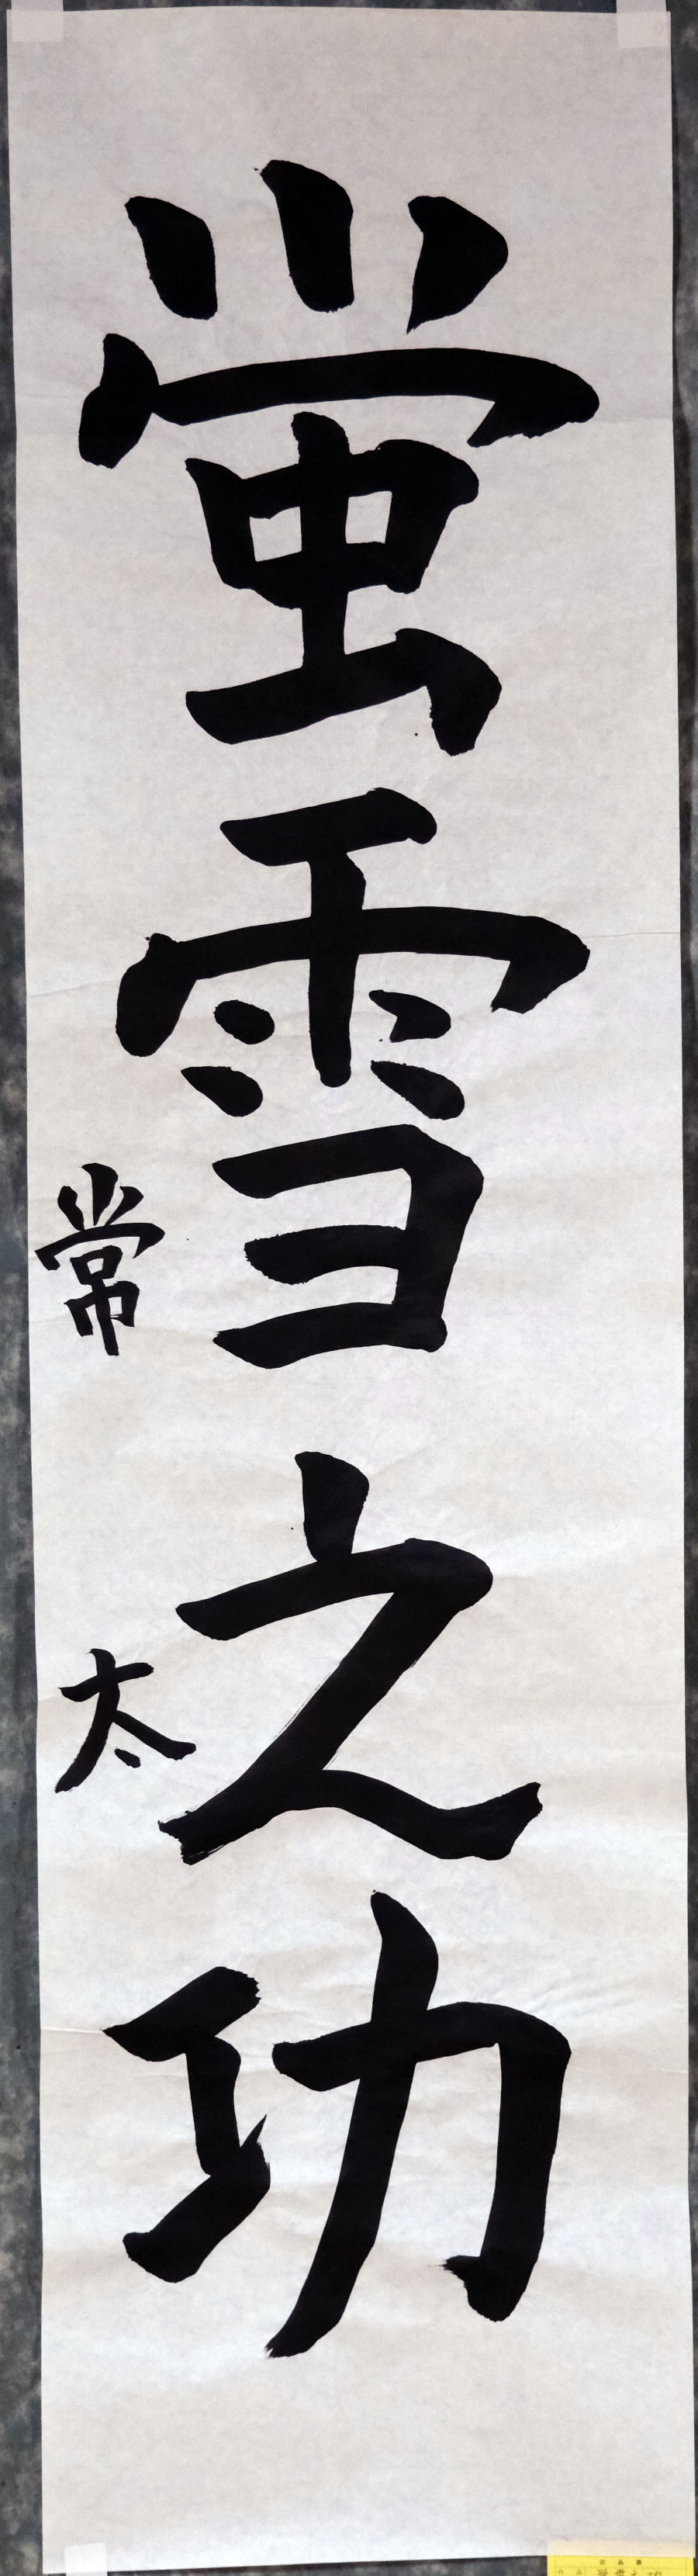 蛍雪之功
常太